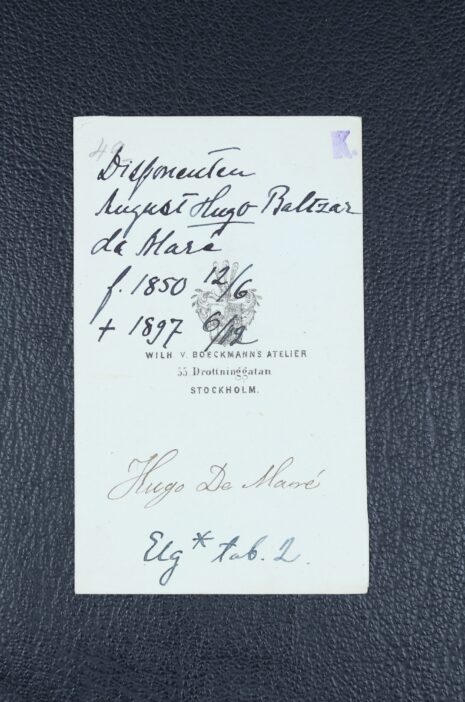 49
K.
Disponenten
August Hugo Baltzar
de Maré
f. 1850 12/6
+ 1897 6/12
WILH V. BOECKMANNS ATELIER
55 Drottninggatan
STOCKHOLM.
Hugo De Maré
Elg * tab. 2.